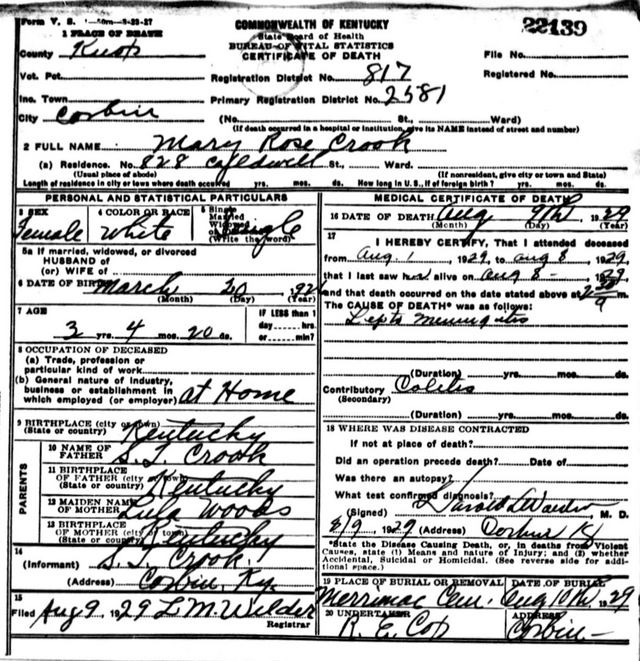 Form V. S. 8-23-27
COMMONWEALTH OF KENTUCKY
22139
1 PLACE OF DEATH
State Board of Health
BUREAU OF VITAL STATISTICS
County Knox
CERTIFICATE OF DEATH
File No.
Vot. Pct.
Registration District No. 817
Registered No.
Inc. Town
Primary Registration District No. 2581
City Corbin (No. St., Ward)
(If death occurred in a hospital or institution, give its NAME instead of street and number)
2 FULL NAME Mary Rose Crook
(a) Residence. No. 828 Caldwell St., Ward.
(Usual place of abode) (If nonresident, give city or town and State)
Length of residence in city or town where death occurred yrs. mos. ds. How long in U. S., if of foreign birth? yrs. mos. ds.
PERSONAL AND STATISTICAL PARTICULARS
3 SEX 4 COLOR OR RACE 5 Single
Married
Widowed
or
(Write the word)
Female White Single
5a If married, widowed, or divorced
HUSBAND of
(or) WIFE of
6 DATE OF BIRTH March 20 192
(Month) (Day) (Year)
7 AGE IF LESS than 1
day hrs.
or min?
3 yrs. 4 mos. 20 ds.
8 OCCUPATION OF DECEASED
(a) Trade, profession or
particular kind of work
(b) General nature of industry,
business or establishment in
which employed (or employer) at Home
9 BIRTHPLACE (city or town)
(State or country) Kentucky
PARENTS
10 NAME OF
FATHER S. T. Crook
11 BIRTHPLACE
OF FATHER (city or town)
(State or country) Kentucky
12 MAIDEN NAME
OF MOTHER Lula Woods
13 BIRTHPLACE
OF MOTHER (city or town)
(State or country) Kentucky
14
(Informant) S. T. Crook
(Address) Corbin, Ky.
15
Filed Aug 9, 1929 L. M. Wilder
Registrar
MEDICAL CERTIFICATE OF DEATH
16 DATE OF DEATH Aug 9th 1929
(Month) (Day) (Year)
17
I HEREBY CERTIFY, That I attended deceased
from Aug. 1, 1929, to Aug 8, 1929,
that I last saw her alive on Aug 8 - 1929,
and that death occurred on the date stated above at m.
The CAUSE OF DEATH* was as follows:
Lepto Meningitis
(Duration) yrs. mos. ds.
Contributory Colitis
(Secondary)
(Duration) yrs. mos. ds.
18 WHERE WAS DISEASE CONTRACTED
If not at place of death?
Did an operation precede death? Date of
Was there an autopsy?
What test confirmed diagnosis?
(Signed) M. D.
8/9, 1929 (Address) Corbin Ky
*State the Disease Causing Death, or, in deaths from Violent
Causes, state (1) Means and nature of Injury; and (2) whether
Accidental, Suicidal or Homicidal. (See reverse side for additional space.)
19 PLACE OF BURIAL OR REMOVAL DATE OF BURIAL
Merrimac Cem. Aug 10th 1929
20 UNDERTAKER ADDRESS
R. E. Cop Corbin